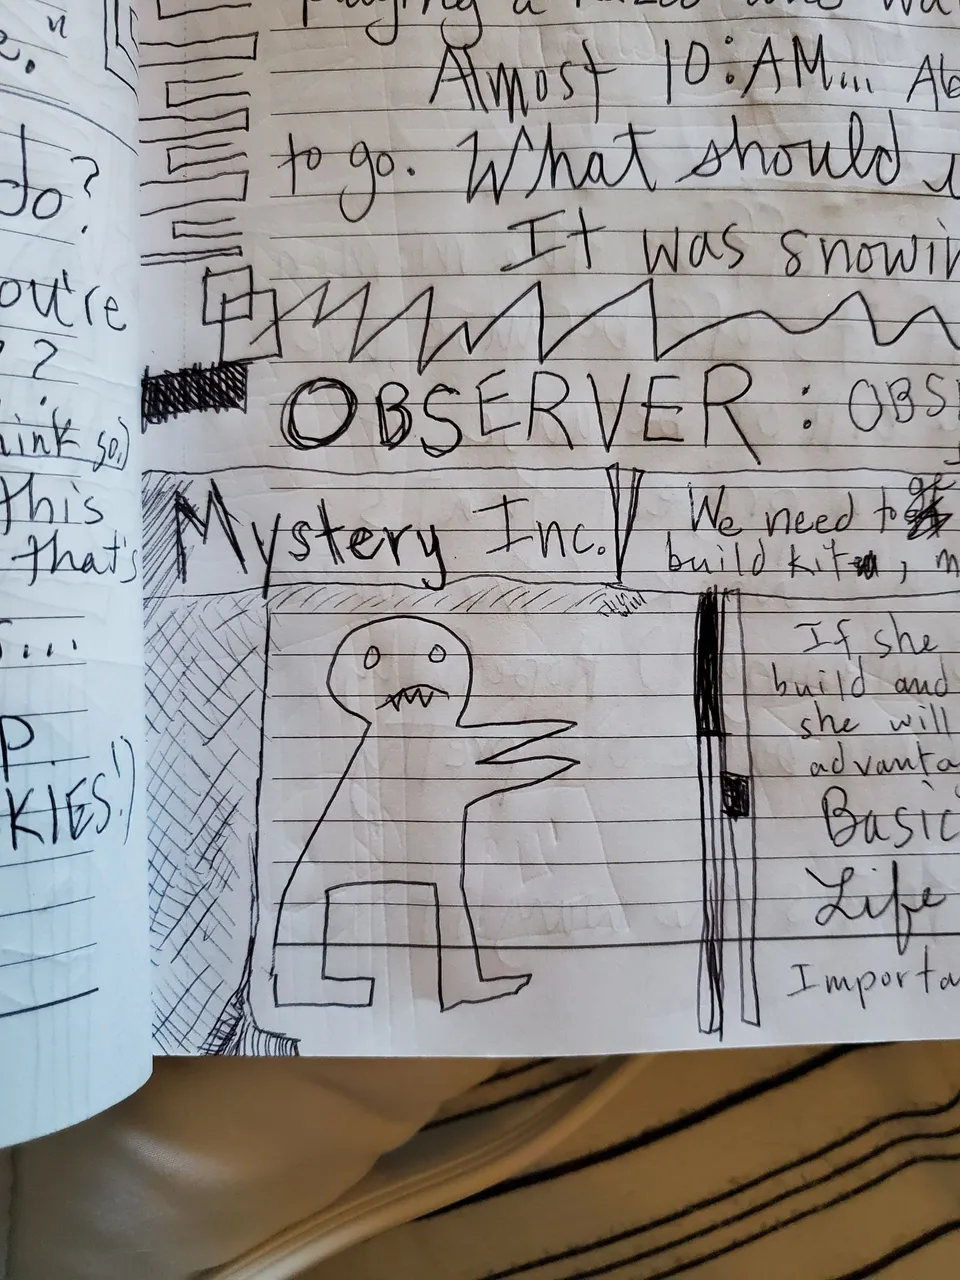 do?
you're
?
think so)
this
that's
P.
KIES!)
playing a
Almost 10:AM...
to go. What should
It was snowin
OBSERVER : OBS
Mystery Inc.!
We need to ge
build kit, m
If she
build and
she will
advanta
Basic
Life
Importa